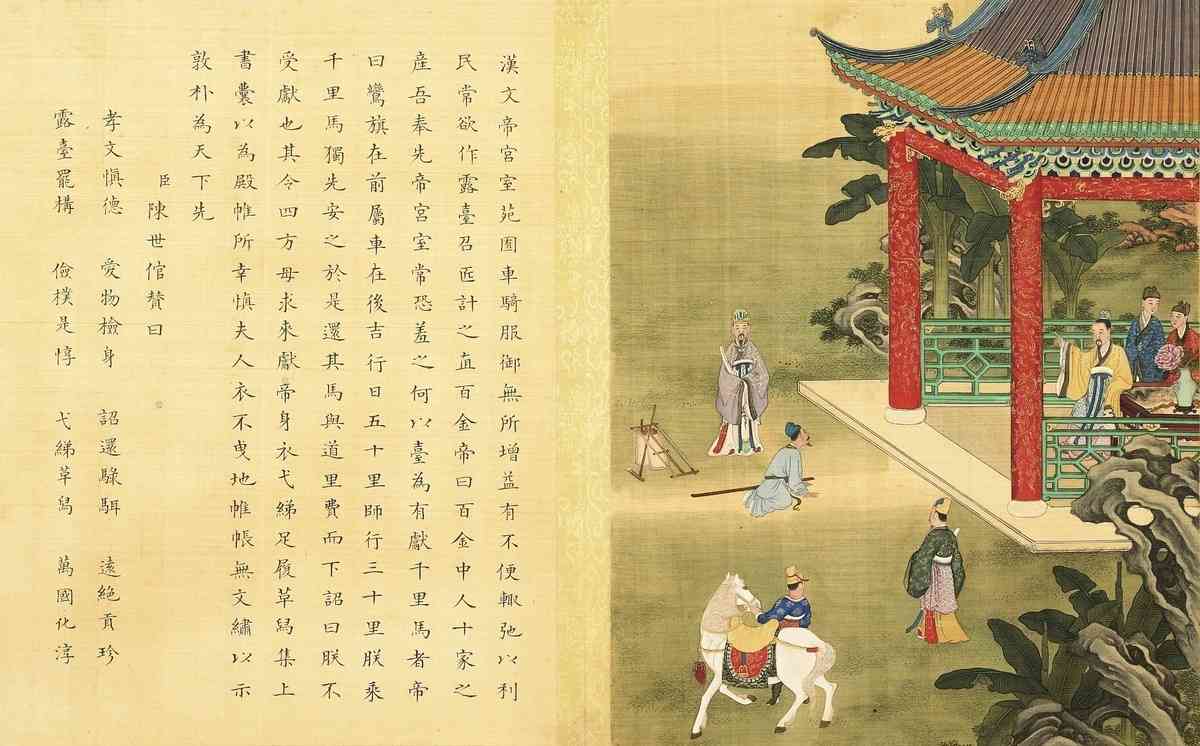 漢文帝宮室苑囿車騎服御無所增益有不便輙弛以利
民常欲作露臺召匠計之直百金帝曰百金中人十家之
産吾奉先帝宮室常恐羞之何以臺為有獻千里馬者帝
曰鸞旗在前屬車在後吉行日五十里師行三十里朕乘
千里馬獨先安之於是還其馬與道里費而下詔曰朕不
受獻也其令四方毋求來獻帝身衣弋綈足履草舄集上
書囊以為殿帷所幸慎夫人衣不曳地帷帳無文繡以示
敦朴為天下先
臣陳世倌贊曰
孝文慎德 愛物檢身 詔還騄駬 遠絶貢珍
露臺罷構 儉樸是惇 弋綈草舄 萬國化淳